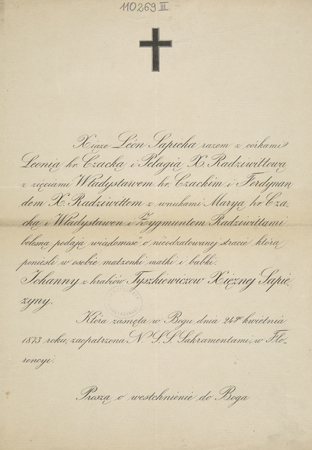 110269 III
Xiąże Léon Sapieha razem z córkami
Leonią hr. Czacka i Pelagią X. Radziwiłłową
z zięciami Władysławem hr. Czackim i Ferdynan
dem X. Radziwiłłem z wnukami Marya hr. Cza,
cką i Władysławem i Zygmuntem Radziwiłłami
bolesną podają wiadomość o nieodżałowanej stracie którą
ponieśli w osobie małżonki matki i babki.
Johanny z hrabiów Tyszkiewiczów Xiężnej Sapie,
żyny.
Która zasnęła w Bogu dnia 24go kwietnia
1873 roku, zaopatrzona N. S. S. Sakramentami, w Flo,
rencyi.
Proszą o westchnienie do Boga